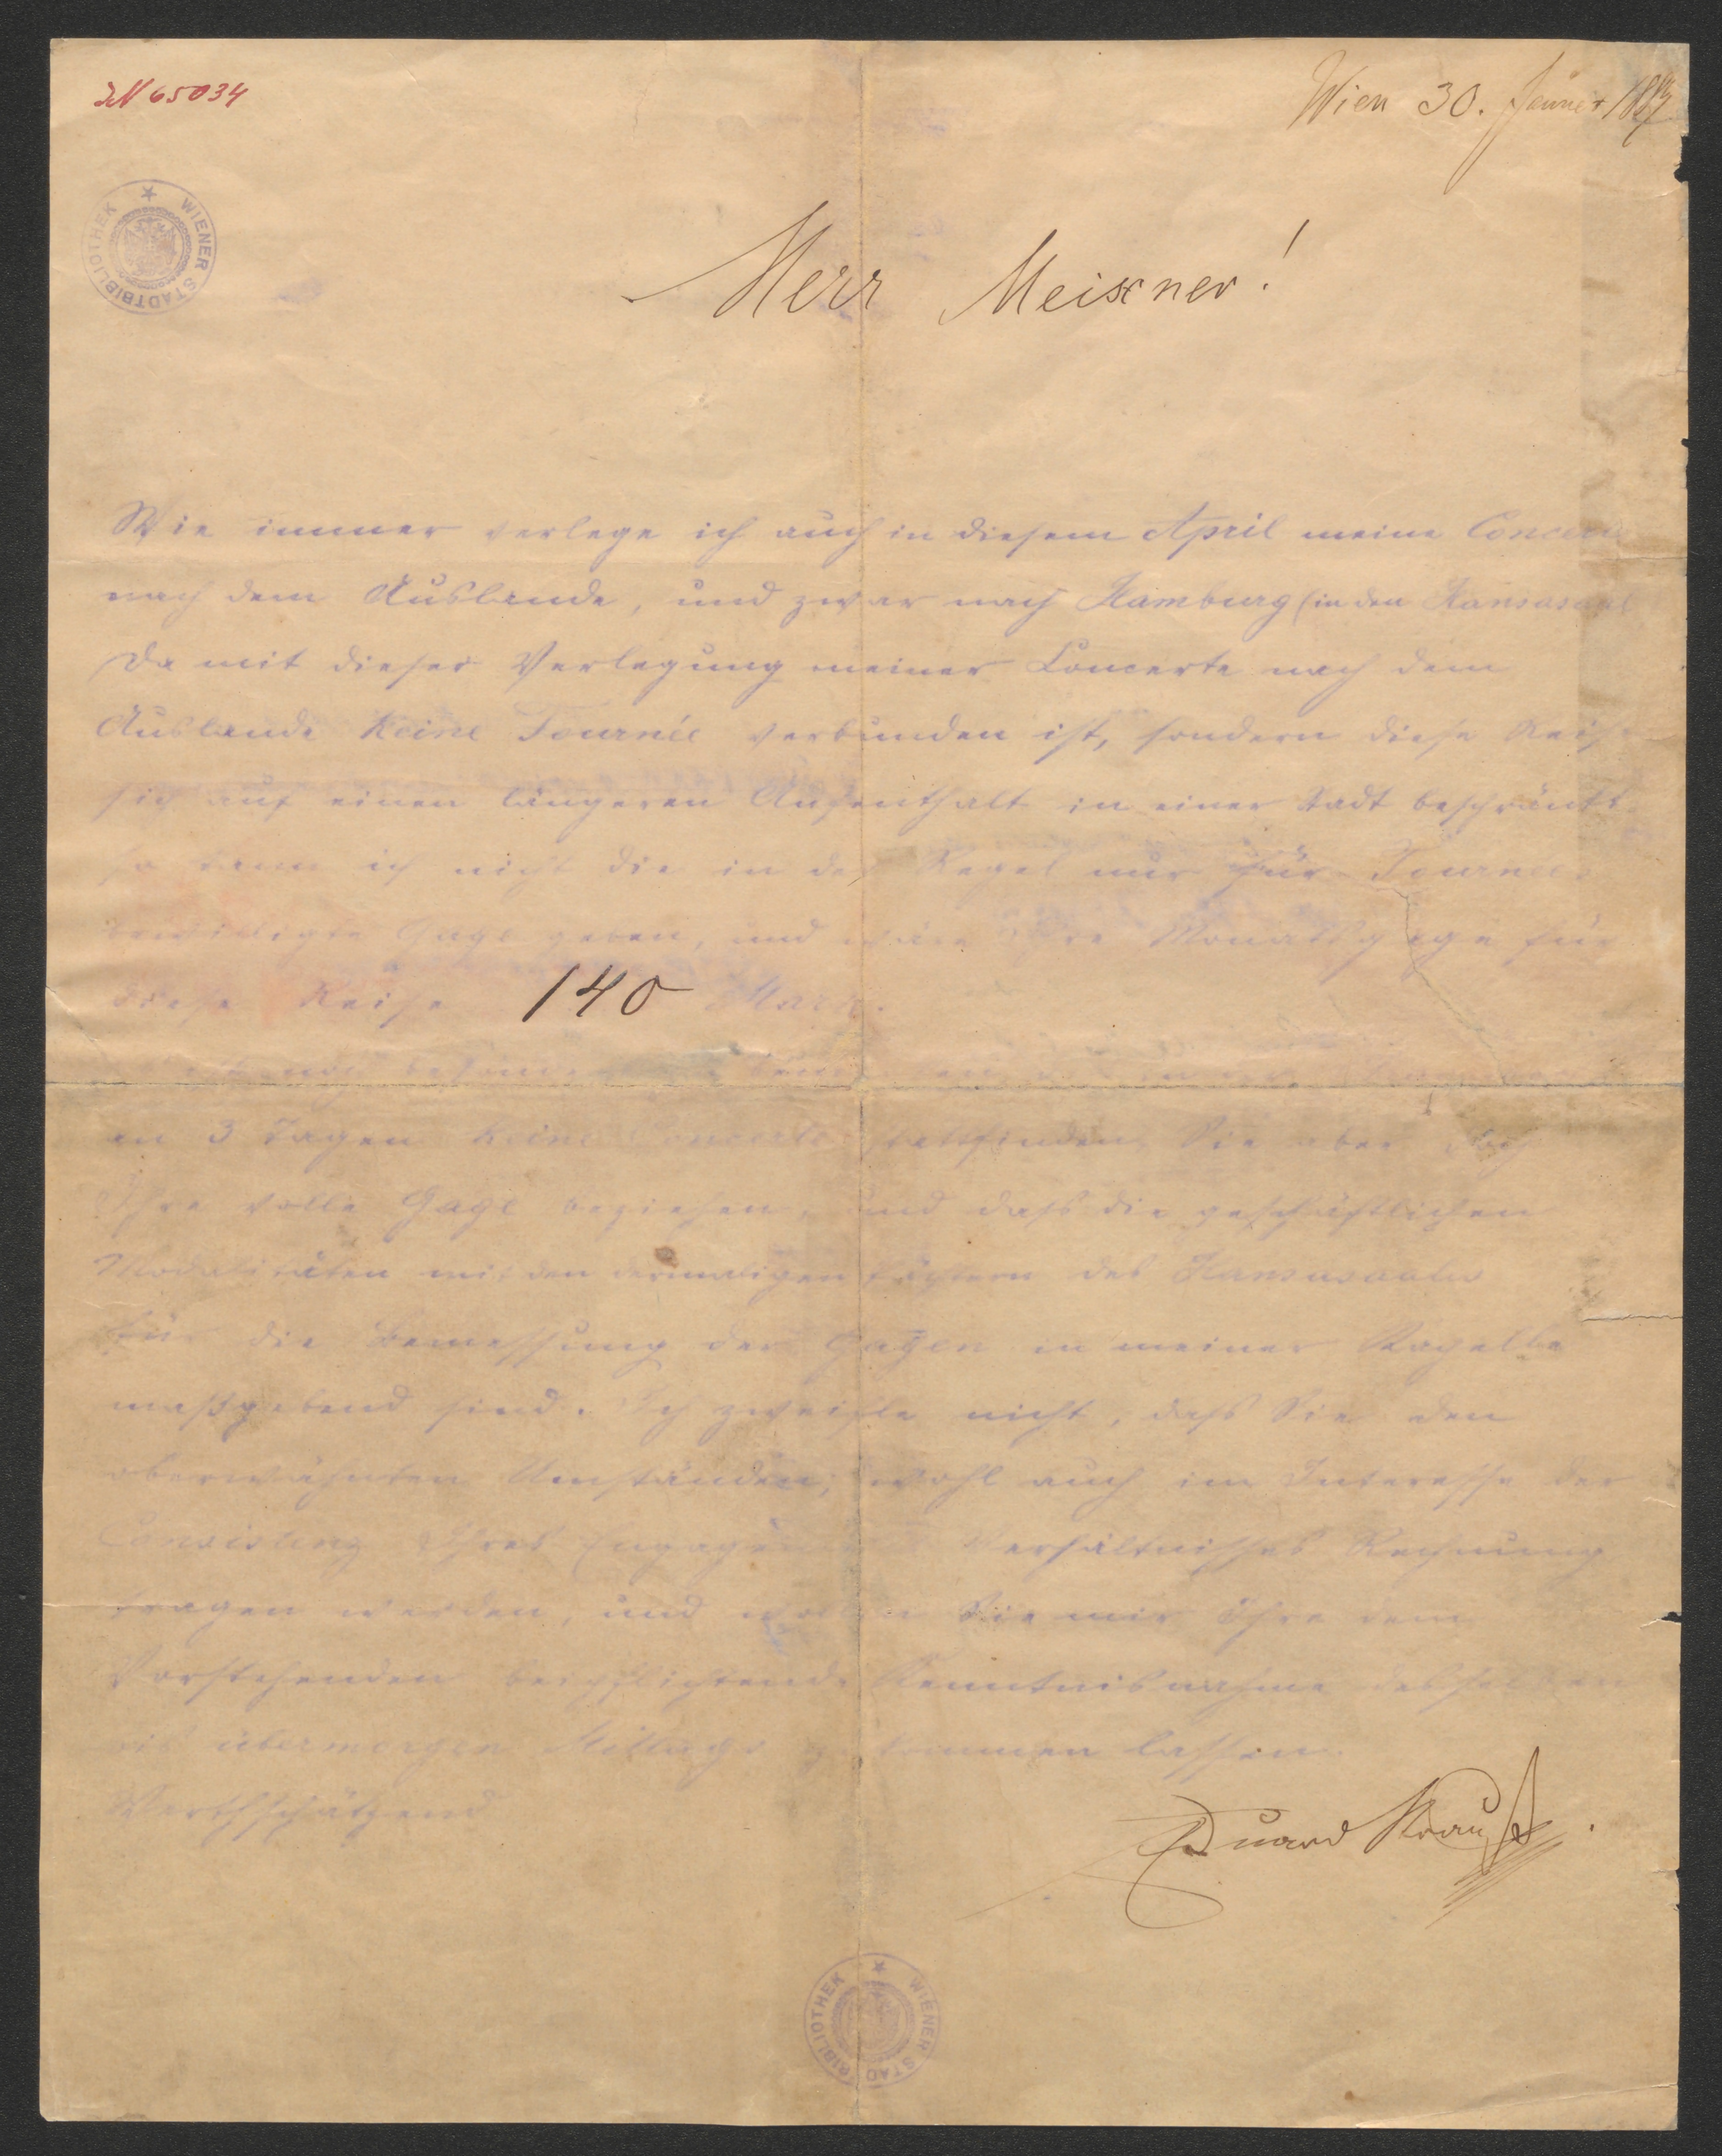 JN 65034
Wien 30. Jänner 188
WIENER STADTBIBLIOTHEK
Herr Meixner!
Wie immer verlege ich auch in diesem April meine Concerte
nach dem Auslande, und zwar nach Hamburg (in den Hansasaal
Da mit dieser Verlegung meiner Concerte nach dem
Auslande keine Tournée verbunden ist, sondern diese Reise
sich auf einen längeren Aufenthalt in einer Stadt beschränkt
so kann ich nicht die in der Regel nur für Tournée
bewilligte Gage geben, und wäre Ihre Monatsgage für
diese Reise 140 Mark.
noch
an 3 Tagen keine Concerte stattfinden, Sie aber doch
Ihre volle Gage beziehen, und daß die geschäftlichen
Modalitäten mit den dermaligen Pächtern des Hansasaales
für die Bemessung der Gagen in meiner Kapelle
maßgebend sind. Ich zweifle nicht, daß Sie den
oberwähnten Umständen, wohl auch im Interesse der
Consistenz Ihres Engagements Verhältnisses Rechnung
tragen werden, und wollen Sie mir Ihre dem
Vorstehenden beipflichtende Kenntnisnahme desselben
bis übermorgen Mittags zukommen lassen.
Werthschätzend
Eduard Strauß.
WIENER STADTBIBLIOTHEK